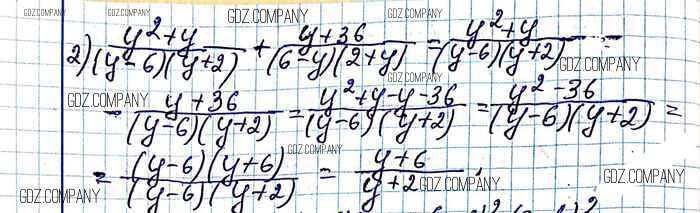 GDZ.COMPANY GDZ.COMPANY GDZ.COMPANY GDZ.COMPANY
2) (y²+y)/((y-6)(y+2)) + (y+36)/((6-y)(2+y)) = (y²+y)/((y-6)(y+2)) -
GDZ.COMPANY GDZ.COMPANY GDZ.COMPANY
- (y+36)/((y-6)(y+2)) = (y²+y-y-36)/((y-6)(y+2)) = (y²-36)/((y-6)(y+2)) =
GDZ.COMPANY GDZ.COMPANY
GDZ.COMPANY
= ((y-6)(y+6))/((y-6)(y+2)) = (y+6)/(y+2);
GDZ.COMPANY GDZ.COMPANY GDZ.COMPANY